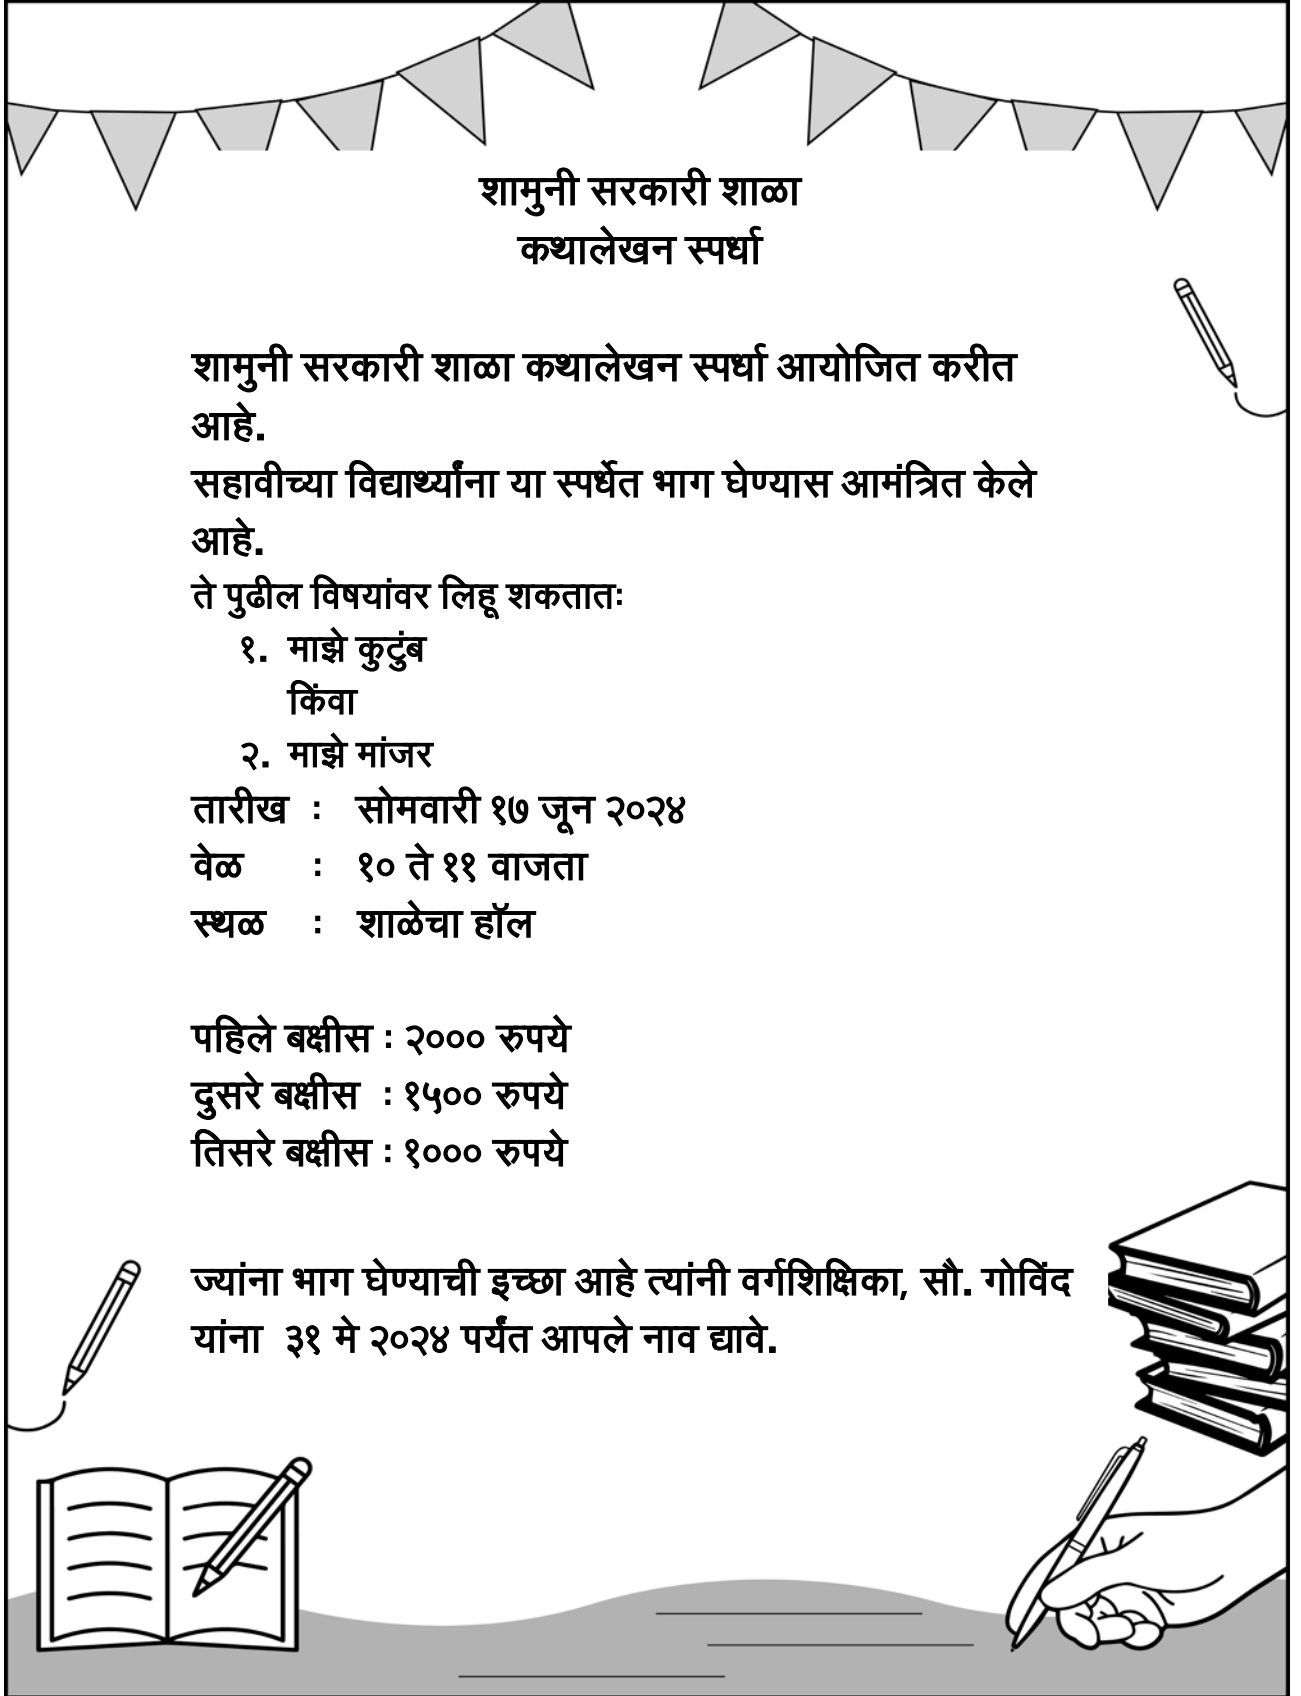 शामुनी सरकारी शाळा
कथालेखन स्पर्धा
शामुनी सरकारी शाळा कथालेखन स्पर्धा आयोजित करीत
आहे.
सहावीच्या विद्यार्थ्यांना या स्पर्धेत भाग घेण्यास आमंत्रित केले
आहे.
ते पुढील विषयांवर लिहू शकतातः
१. माझे कुटुंब
किंवा
२. माझे मांजर
तारीख : सोमवारी १७ जून २०२४
वेळ : १० ते ११ वाजता
स्थळ : शाळेचा हॉल
पहिले बक्षीस : २००० रुपये
दुसरे बक्षीस : १५०० रुपये
तिसरे बक्षीस : १००० रुपये
ज्यांना भाग घेण्याची इच्छा आहे त्यांनी वर्गशिक्षिका, सौ. गोविंद
यांना ३१ मे २०२४ पर्यंत आपले नाव द्यावे.